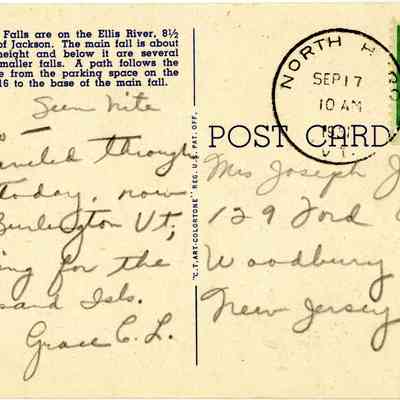 Falls are on the Ellis River, 8½
of Jackson. The main fall is about
height and below it are several
smaller falls. A path follows the
e from the parking space on the
16 to the base of the main fall.
Sun Nite
through
today, now
Burlington Vt,
ing for the
sand Isls.
Grace C. L.
"C.T. ART-COLORTONE" REG. U.S. PAT. OFF.
NORTH H
SEP 17
10 AM
VT.
POST CARD
Mrs Joseph J
129 Ford
Woodbury
New Jersey